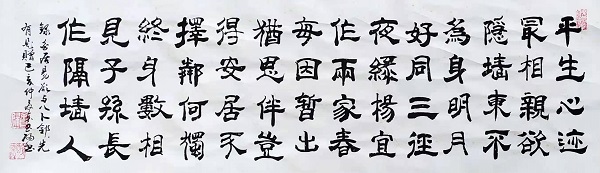 平生心迹
最相親欲
隱墙東不
為身明月
好同三徑
夜緑楊宜
作兩家春
每因暫出
猶思伴豈
得安居不
擇鄰何獨
終身數相
見子孫長
作隔墙人
錄白居易欲与元八卜鄰先
有是贈己亥仲冬